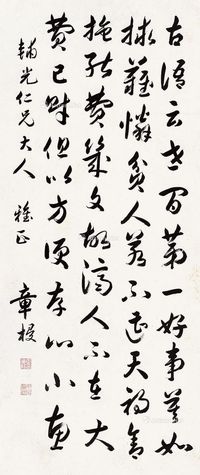 古語云世間第一好事莫如
救難憐貧人若不遭天禍舍
施能費幾文故濟人不在大
費己財但以方便存心小惠
輔光仁兄大人 雅正 章梫